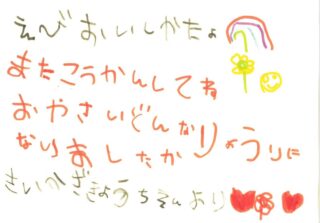 えび おいしかたよ
またこうかんしてね
おやさいどんなりょうりに
なりましたか
きいかざきようちえんより